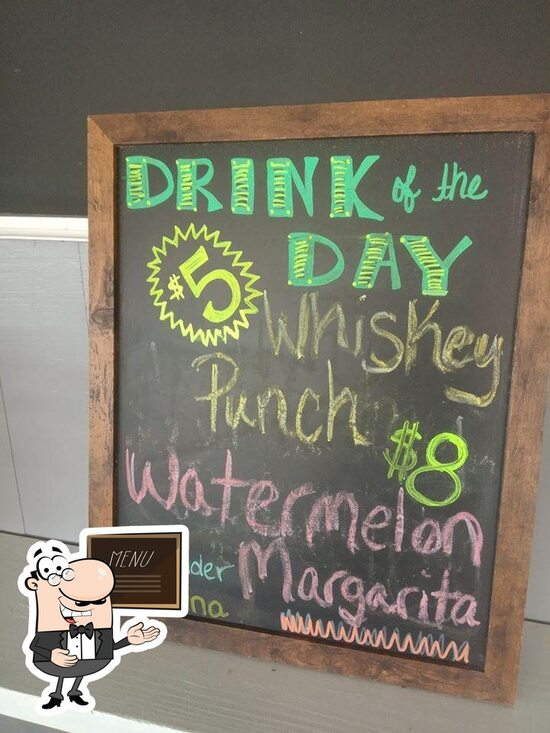 DRINK of the
DAY
$5
Whiskey
Punch
$8
Watermelon
Margarita
MENU